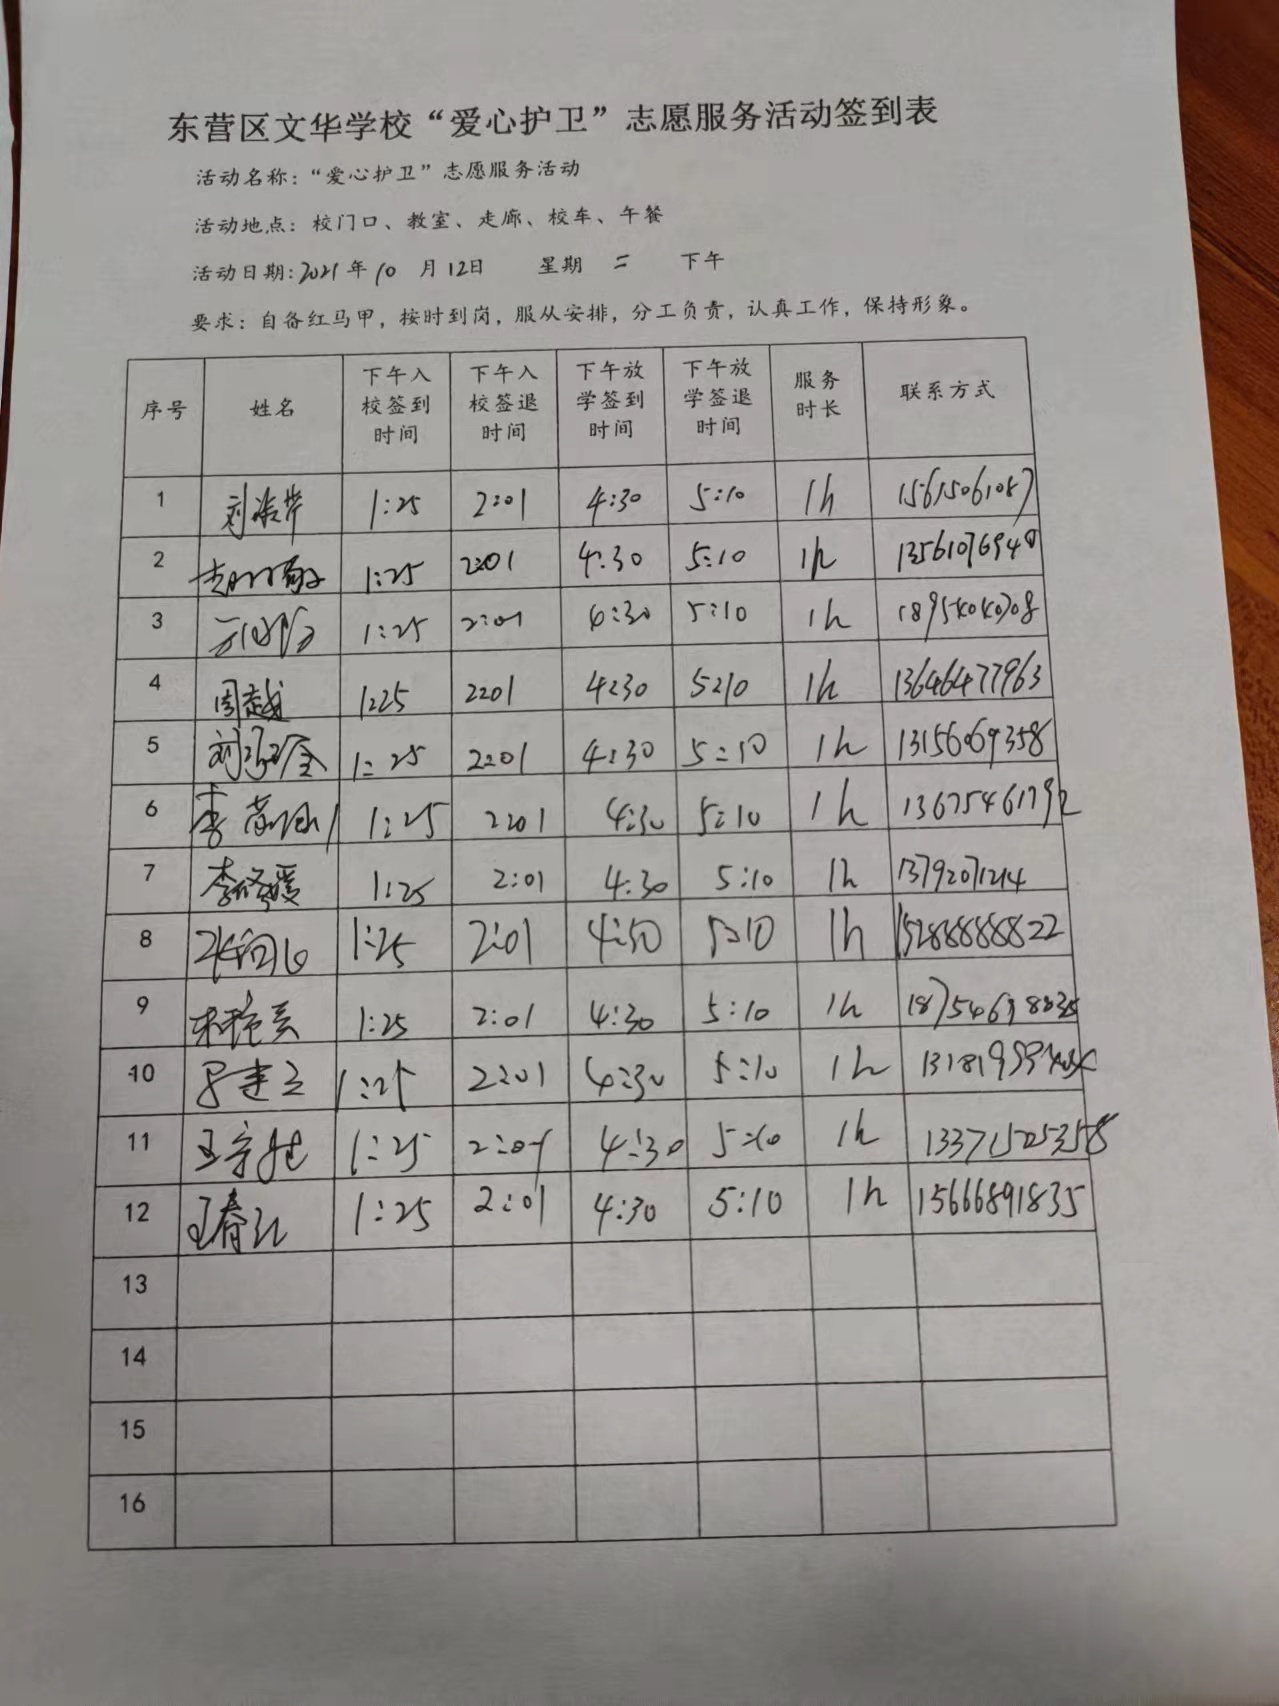 东营区文华学校“爱心护卫”志愿服务活动签到表
活动名称：“爱心护卫”志愿服务活动
活动地点：校门口、教室、走廊、校车、午餐
活动日期:2021年10月12日 星期 二 下午
要求：自备红马甲，按时到岗，服从安排，分工负责，认真工作，保持形象。
序号 姓名 下午入校签到时间 下午入校签退时间 下午放学签到时间 下午放学签退时间 服务时长 联系方式
1 1:25 2:01 4:30 5:10 1h 15615061087
2 1:25 2:01 4:30 5:10 1h
3 1:25 2:01 4:30 5:10 1h
4 周越 1:25 2:01 4:30 5:10 1h 13646477963
5 1:25 2:01 4:30 5:10 1h 13156069358
6 1:25 2:01 4:30 5:10 1h 13675461792
7 1:25 2:01 4:30 5:10 1h 13792071214
8 1:25 2:01 4:50 5:10 1h 15288888822
9 1:25 2:01 4:30 5:10 1h
10 1:25 2:01 4:30 5:10 1h
11 1:25 2:01 4:30 5:10 1h
12 王春红 1:25 2:01 4:30 5:10 1h 15666891835
13
14
15
16